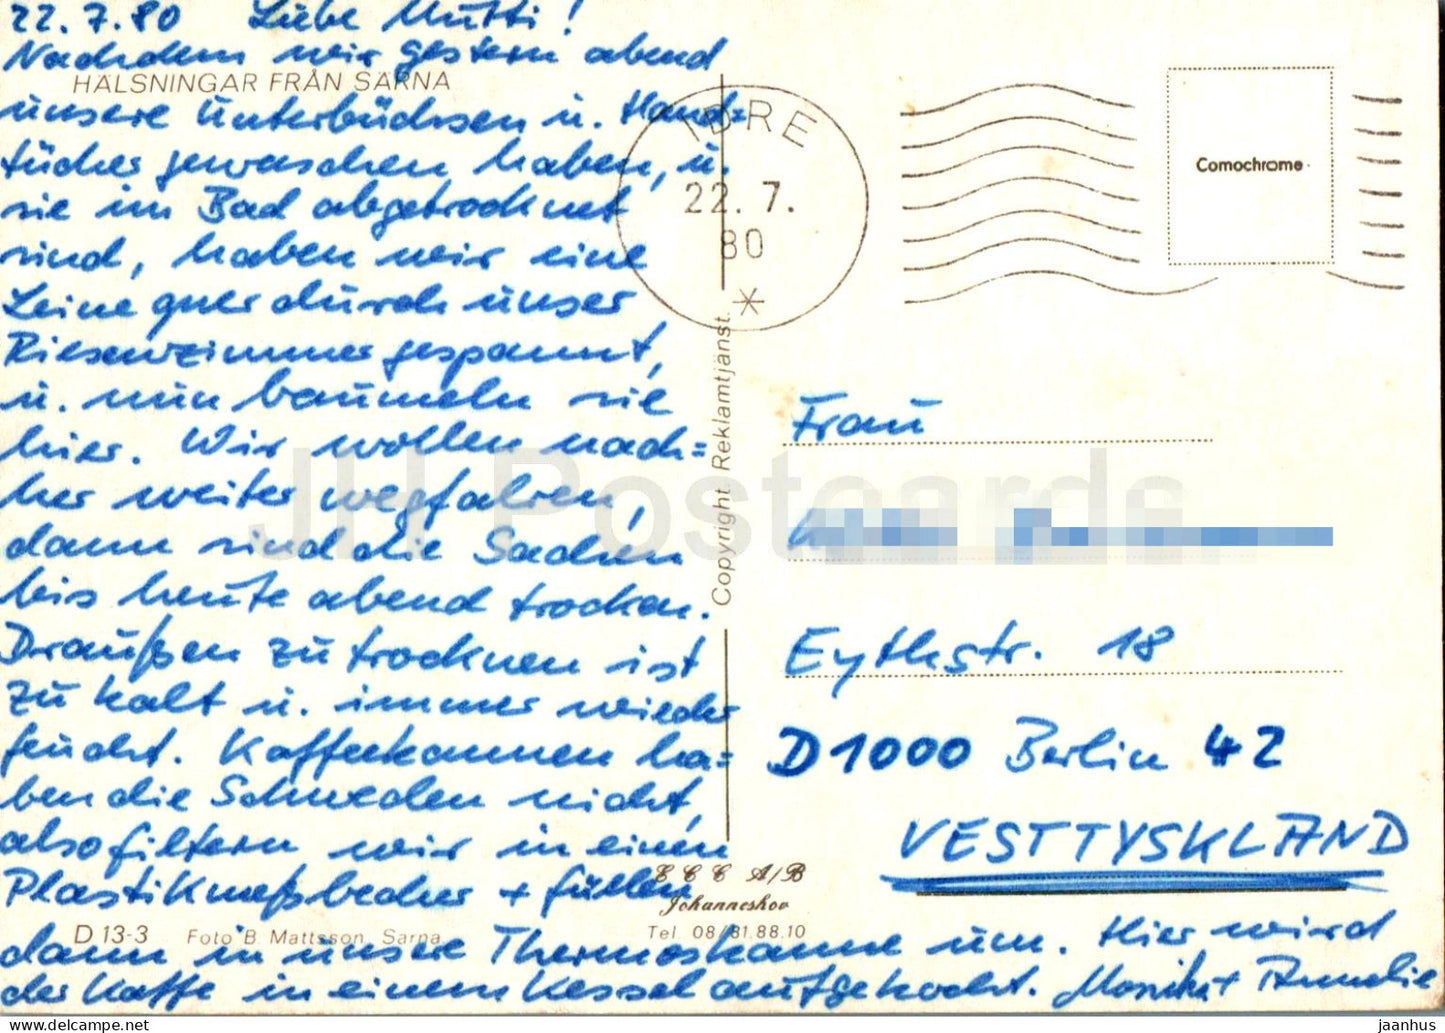 22.7.80 Liebe Mutti!
Nachdem wir gestern abend
HÄLSNINGAR FRÅN SÄRNA
unsere Unterbüchsen u. Hand=
tücher gewaschen haben, u.
sie im Bad abgetrocknet
sind, haben wir eine
Leine quer durch unser
Riesenzimmer gespannt,
u. nun baumeln sie
hier. Wir wollen nach=
her weiter wegfahren,
dann sind die Sachen
bis heute abend trocken.
Draußen zu trocknen ist
zu kalt u. immer wieder
feucht. Kaffeekannen ha=
ben die Schweden nicht,
also filtern wir in einen
Plastikmeßbecher + füllen
dann in unsere Thermoskanne um. Hier wird
der Kaffe in einem Kessel aufgekocht. Monika + Annelie
D 13-3 Foto B. Mattsson, Särna
IDRE
22. 7.
80
Comochrome
Copyright. Reklamtjänst.
Frau
Eythstr. 18
D 1000 Berlin 42
VESTTYSKLAND
E C C A/B
Johanneshov
Tel 08/81.88.10
JH Postcards
delcampe.net
jaanhus